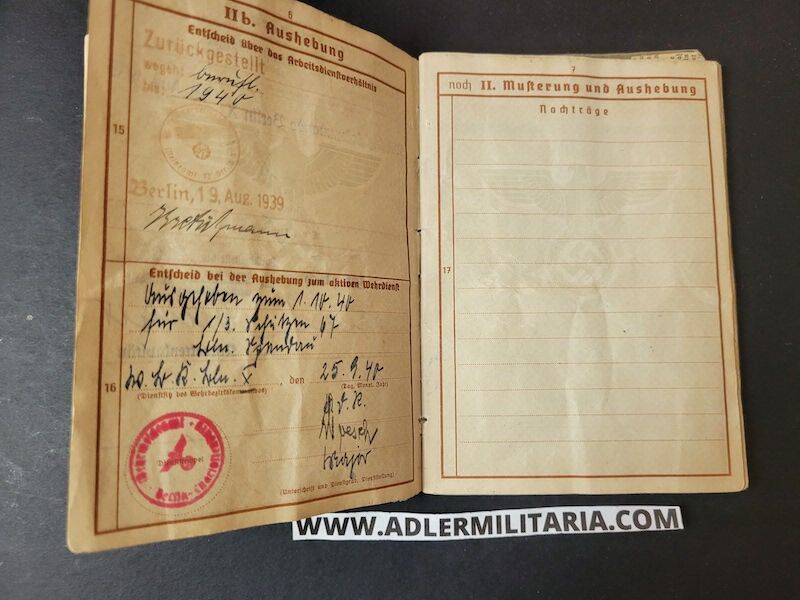 6
II b. Aushebung
Entscheid über das Arbeitsdienstverhältnis
Zurückgestellt
wegen: berufl.
bis: 1940
15
Berlin, 19. Aug. 1939
Entscheid bei der Aushebung zum aktiven Wehrdienst
Ausgehoben zum 1.10.40
für 1/3. Schützen 67
Bln. Spandau
16
W. Br. K. Bln. X, den 25.9.40
(Dienstsitz des Wehrbezirkskommandos)
(Tag, Monat, Jahr)
Dienststempel
Major
(Unterschrift und Dienstgrad, Dienststellung)
7
noch II. Musterung und Aushebung
Nachträge
17
WWW.ADLERMILITARIA.COM